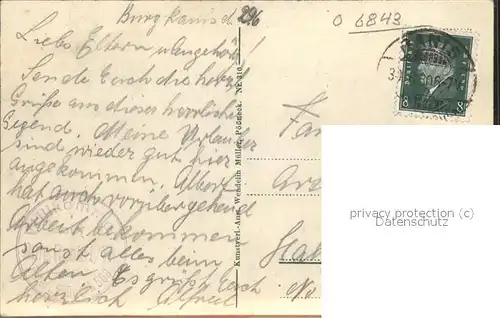 Burg Ranis d. 29/6
O 6843
Liebe Eltern u. Angehörig!
Sende Euch die herz.
Grüße aus dieser herrlichen
Gegend. Meine Urlauber
sind wieder gut hier
angekommen. Albert
hat auch vorübergehend
Arbeit bekommen
sonst alles beim
Alten. Es grüßt Euch
herzlich Alfred
Kunstverl.-Anst. Wendelin Müller, Pößneck. Nr. 310
Fam
8 8
privacy protection (c)
Datenschutz